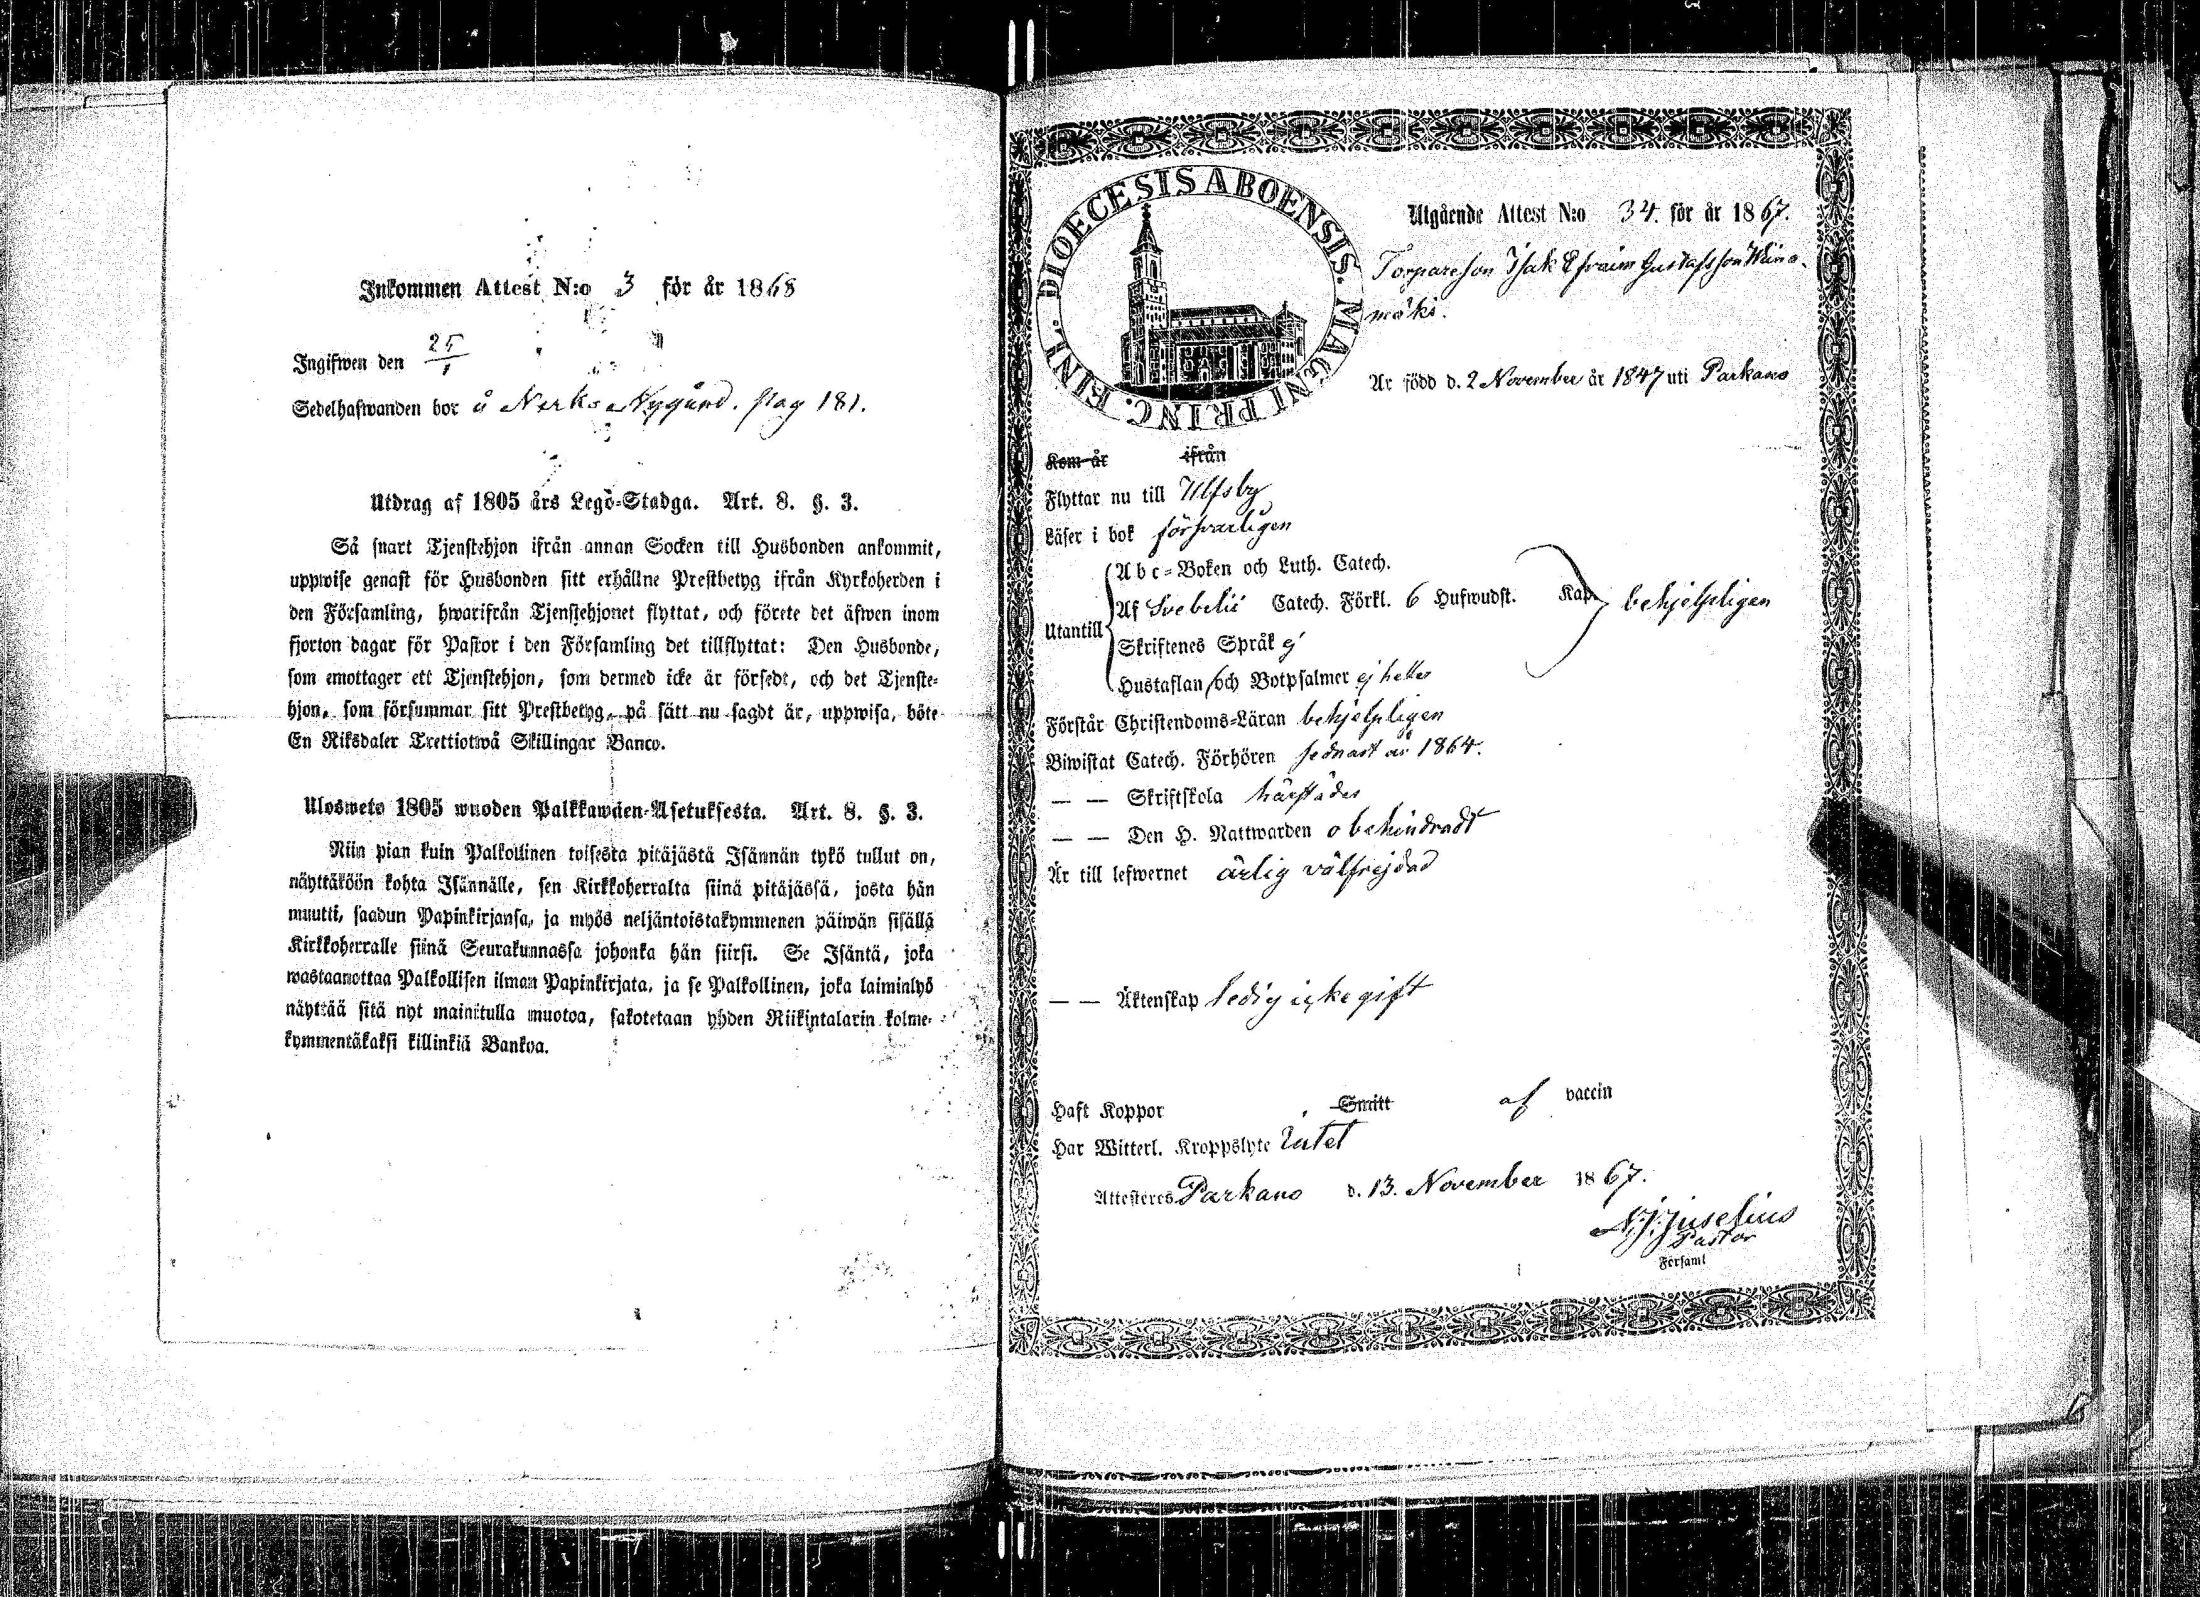 Inkommen Attest N:o 3 för år 1868
Ingifwen den 25/1
Sedelhafwanden bor å Nygård. pag 181.
Utdrag af 1805 års Lego-Stadga. Art. 8. §. 3.
Så snart Tjenstehjon ifrån annan Socken till Husbonden ankommit,
uppwise genast för Husbonden sitt erhållne Prestbetyg ifrån Kyrkoherden i
den Församling, hwarifrån Tjenstehjonet flyttat, och förete det äfwen inom
fjorton dagar för Pastor i den Församling det tillflyttat: Den Husbonde,
som emottager ett Tjenstehjon, som dermed icke är försedt, och det Tjenste-
hjon, som försummar sitt Prestbetyg, på sätt nu sagdt är, uppwisa, böte
En Riksdaler Trettiotwå Skillingar Banco.
Ulosweto 1805 wuoden Palkkawäen-Asetuksesta. Art. 8. §. 3.
Niin pian kuin Palkollinen toisesta pitäjästä Isännän tykö tullut on,
näyttäköön kohta Isännälle, sen Kirkkoherralta siinä pitäjässä, josta hän
muutti, saadun Papinkirjansa, ja myös neljäntoistakymmenen päiwän sisällä
Kirkkoherralle siinä Seurakunnassa johonka hän siirsi. Se Isäntä, joka
wastaanottaa Palkollisen ilman Papinkirjata, ja se Palkollinen, joka laiminlyö
näyttää sitä nyt mainitulla muotoa, sakotetaan yhden Riikintalarin kolme-
kymmentäkaksi killinkiä Bankoa.
DIOECESIS ABOENSIS. MAGNI PRINC. FINL.
Utgående Attest N:o 34. för år 1867.
Torpareson Isak Efraim Gustafsson Wiina-
mäki.
Är född d. 2 November år 1847 uti Parkano
Kom år ifrån
Flyttar nu till Ulfsby
Läser i bok försvarligen
Abc-Boken och Luth. Catech.
Af Svebelii Catech. Förkl. 6 Hufwudst. Kap behjelpligen
Utantill
Skriftenes Språk ej
Hustaflan och Botpsalmer ej heller
Förstår Christendoms-Läran behjelpligen
Biwistat Catech. Förhören sednast år 1864.
— — Skriftskola härstädes
— — Den H. Nattwarden obehindradt
Är till lefwernet ärlig välfrejdad
— — Äktenskap ledig icke gift
Haft Koppor Smitt af vaccin
Har Witterl. Kroppslyte Intet
Attesteres Parkano d. 13. November 1867.
N. J. Juselius
Pastor
Församl